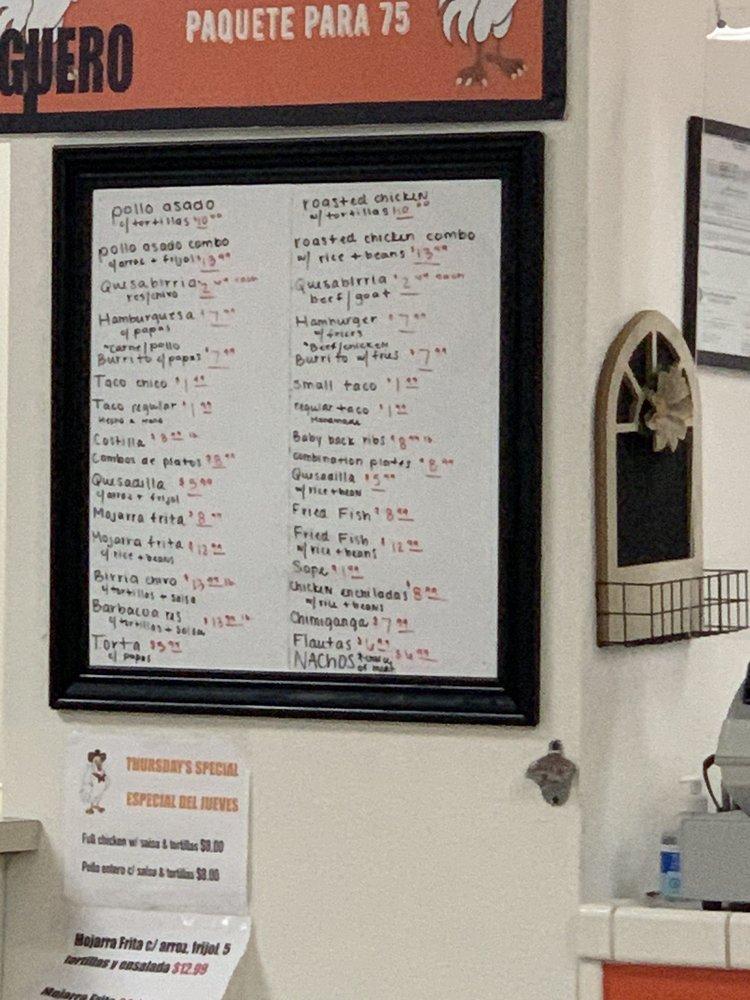 GUERO
PAQUETE PARA 75
pollo asado
c/tortillas $10.00
pollo asado combo
c/arroz + frijol $13.99
Quesabirria 2.49 each
res/chivo
Hamburguesa $7.99
c/papas
*carne/pollo
Burrito c/papas $7.99
Taco chico $1.49
Taco regular $1.99
Hecho a mano
Costilla $8.99 lb
Combos de platos $8.99
Quesadilla $5.99
c/arroz + frijol
Mojarra frita $8.99
Mojarra frita $12.99
c/rice + beans
Birria chivo $13.99 lb
c/tortillas + salsa
Barbacoa res $13.99 lb
c/tortillas + salsa
Torta $5.99
c/papas
roasted chicken
w/tortillas $10.00
roasted chicken combo
w/ rice + beans $13.99
Quesabirria $2.49 each
beef/goat
Hamburger $7.99
w/fries
*Beef/chicken
Burrito w/fries $7.99
small taco $1.49
regular taco $1.99
Handmade
Baby back ribs $8.99 lb
combination plates $8.99
Quesadilla $5.99
w/rice+bean
Fried Fish $8.99
Fried Fish $12.99
w/rice + beans
Sope
chicken enchiladas $8.99
w/rice + beans
Chimiganga $7.99
Flautas $6.99
NACHOS $6.99
of meat
THURSDAY'S SPECIAL
ESPECIAL DEL JUEVES
Full chicken w/ salsa & tortillas $8.00
Pollo entero c/ salsa & tortillas $8.00
Mojarra Frita c/ arroz, frijol, 5
tortillas y ensalada $12.99
Mojarra Frita